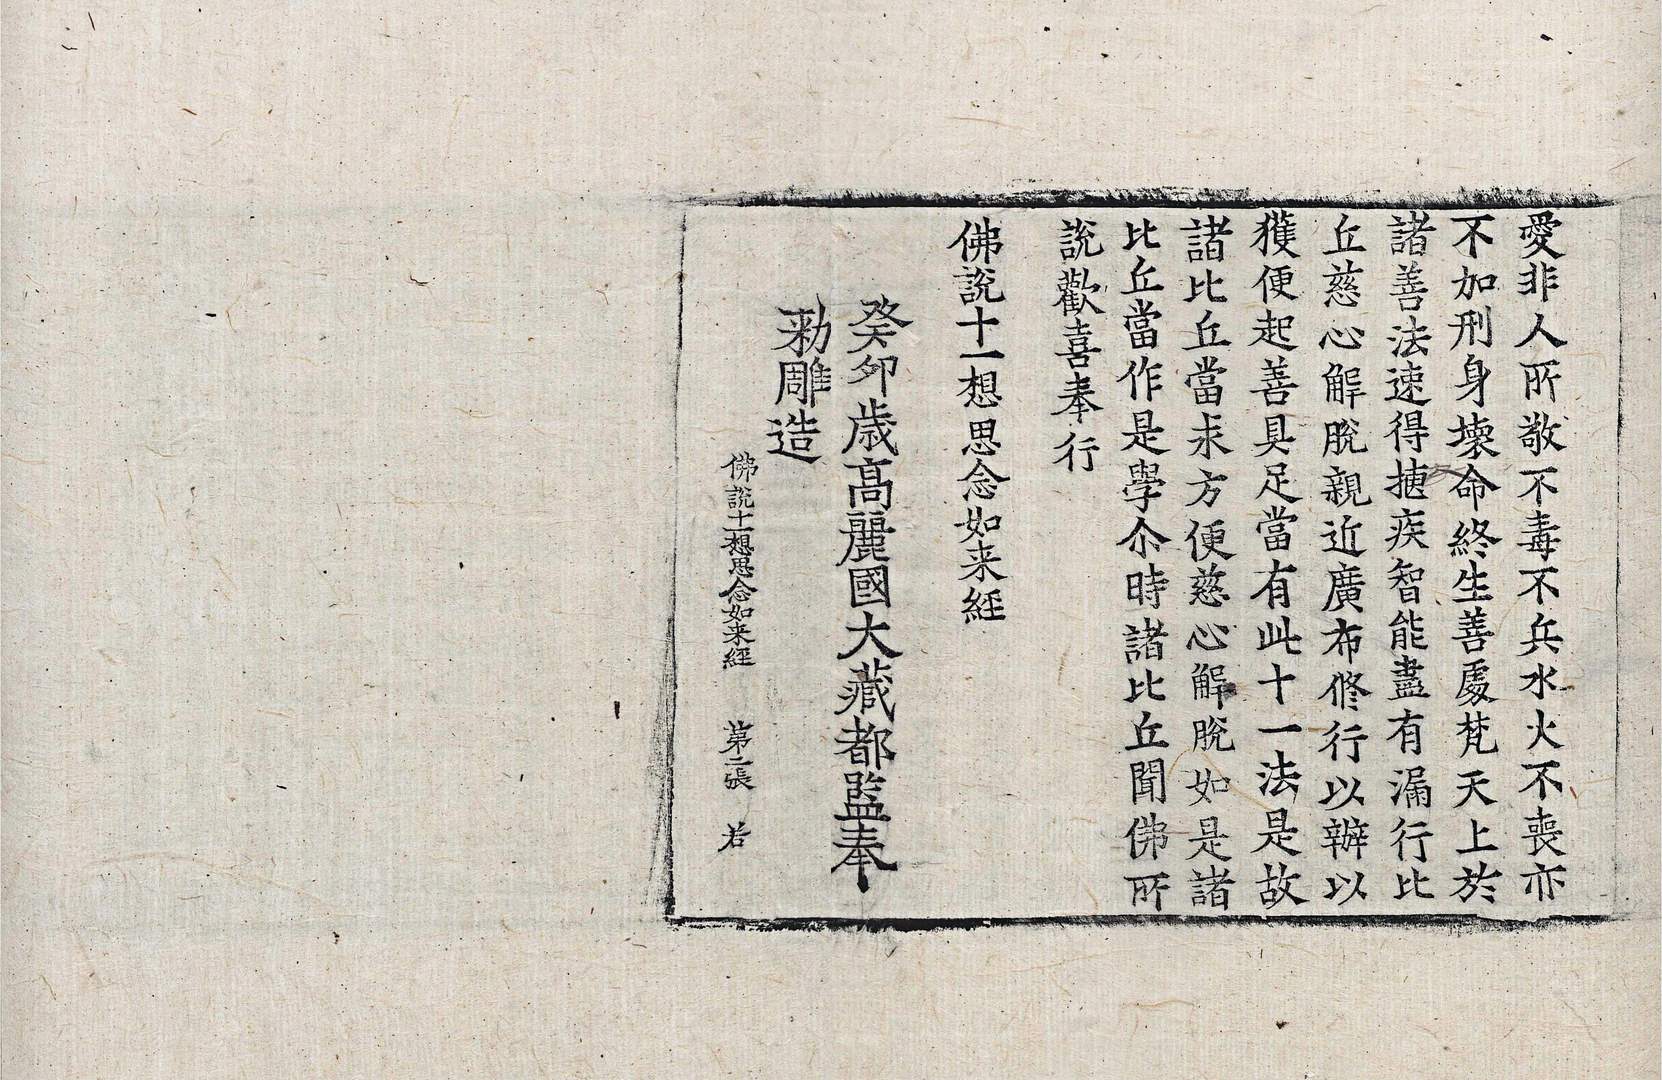 愛非人所敬不毒不兵水火不喪亦
不加刑身壞命終生善處梵天上於
諸善法速得揔疾智能盡有漏行比
丘慈心解脫親近廣布修行以辦以
獲便起善具足當有此十一法是故
諸比丘當求方便慈心解脫如是諸
比丘當作是學尒時諸比丘聞佛所
說歡喜奉行
佛說十一想思念如来經
癸卯歳高麗國大藏都監奉
勑雕造
佛說十一想思念如来經 第二張 若